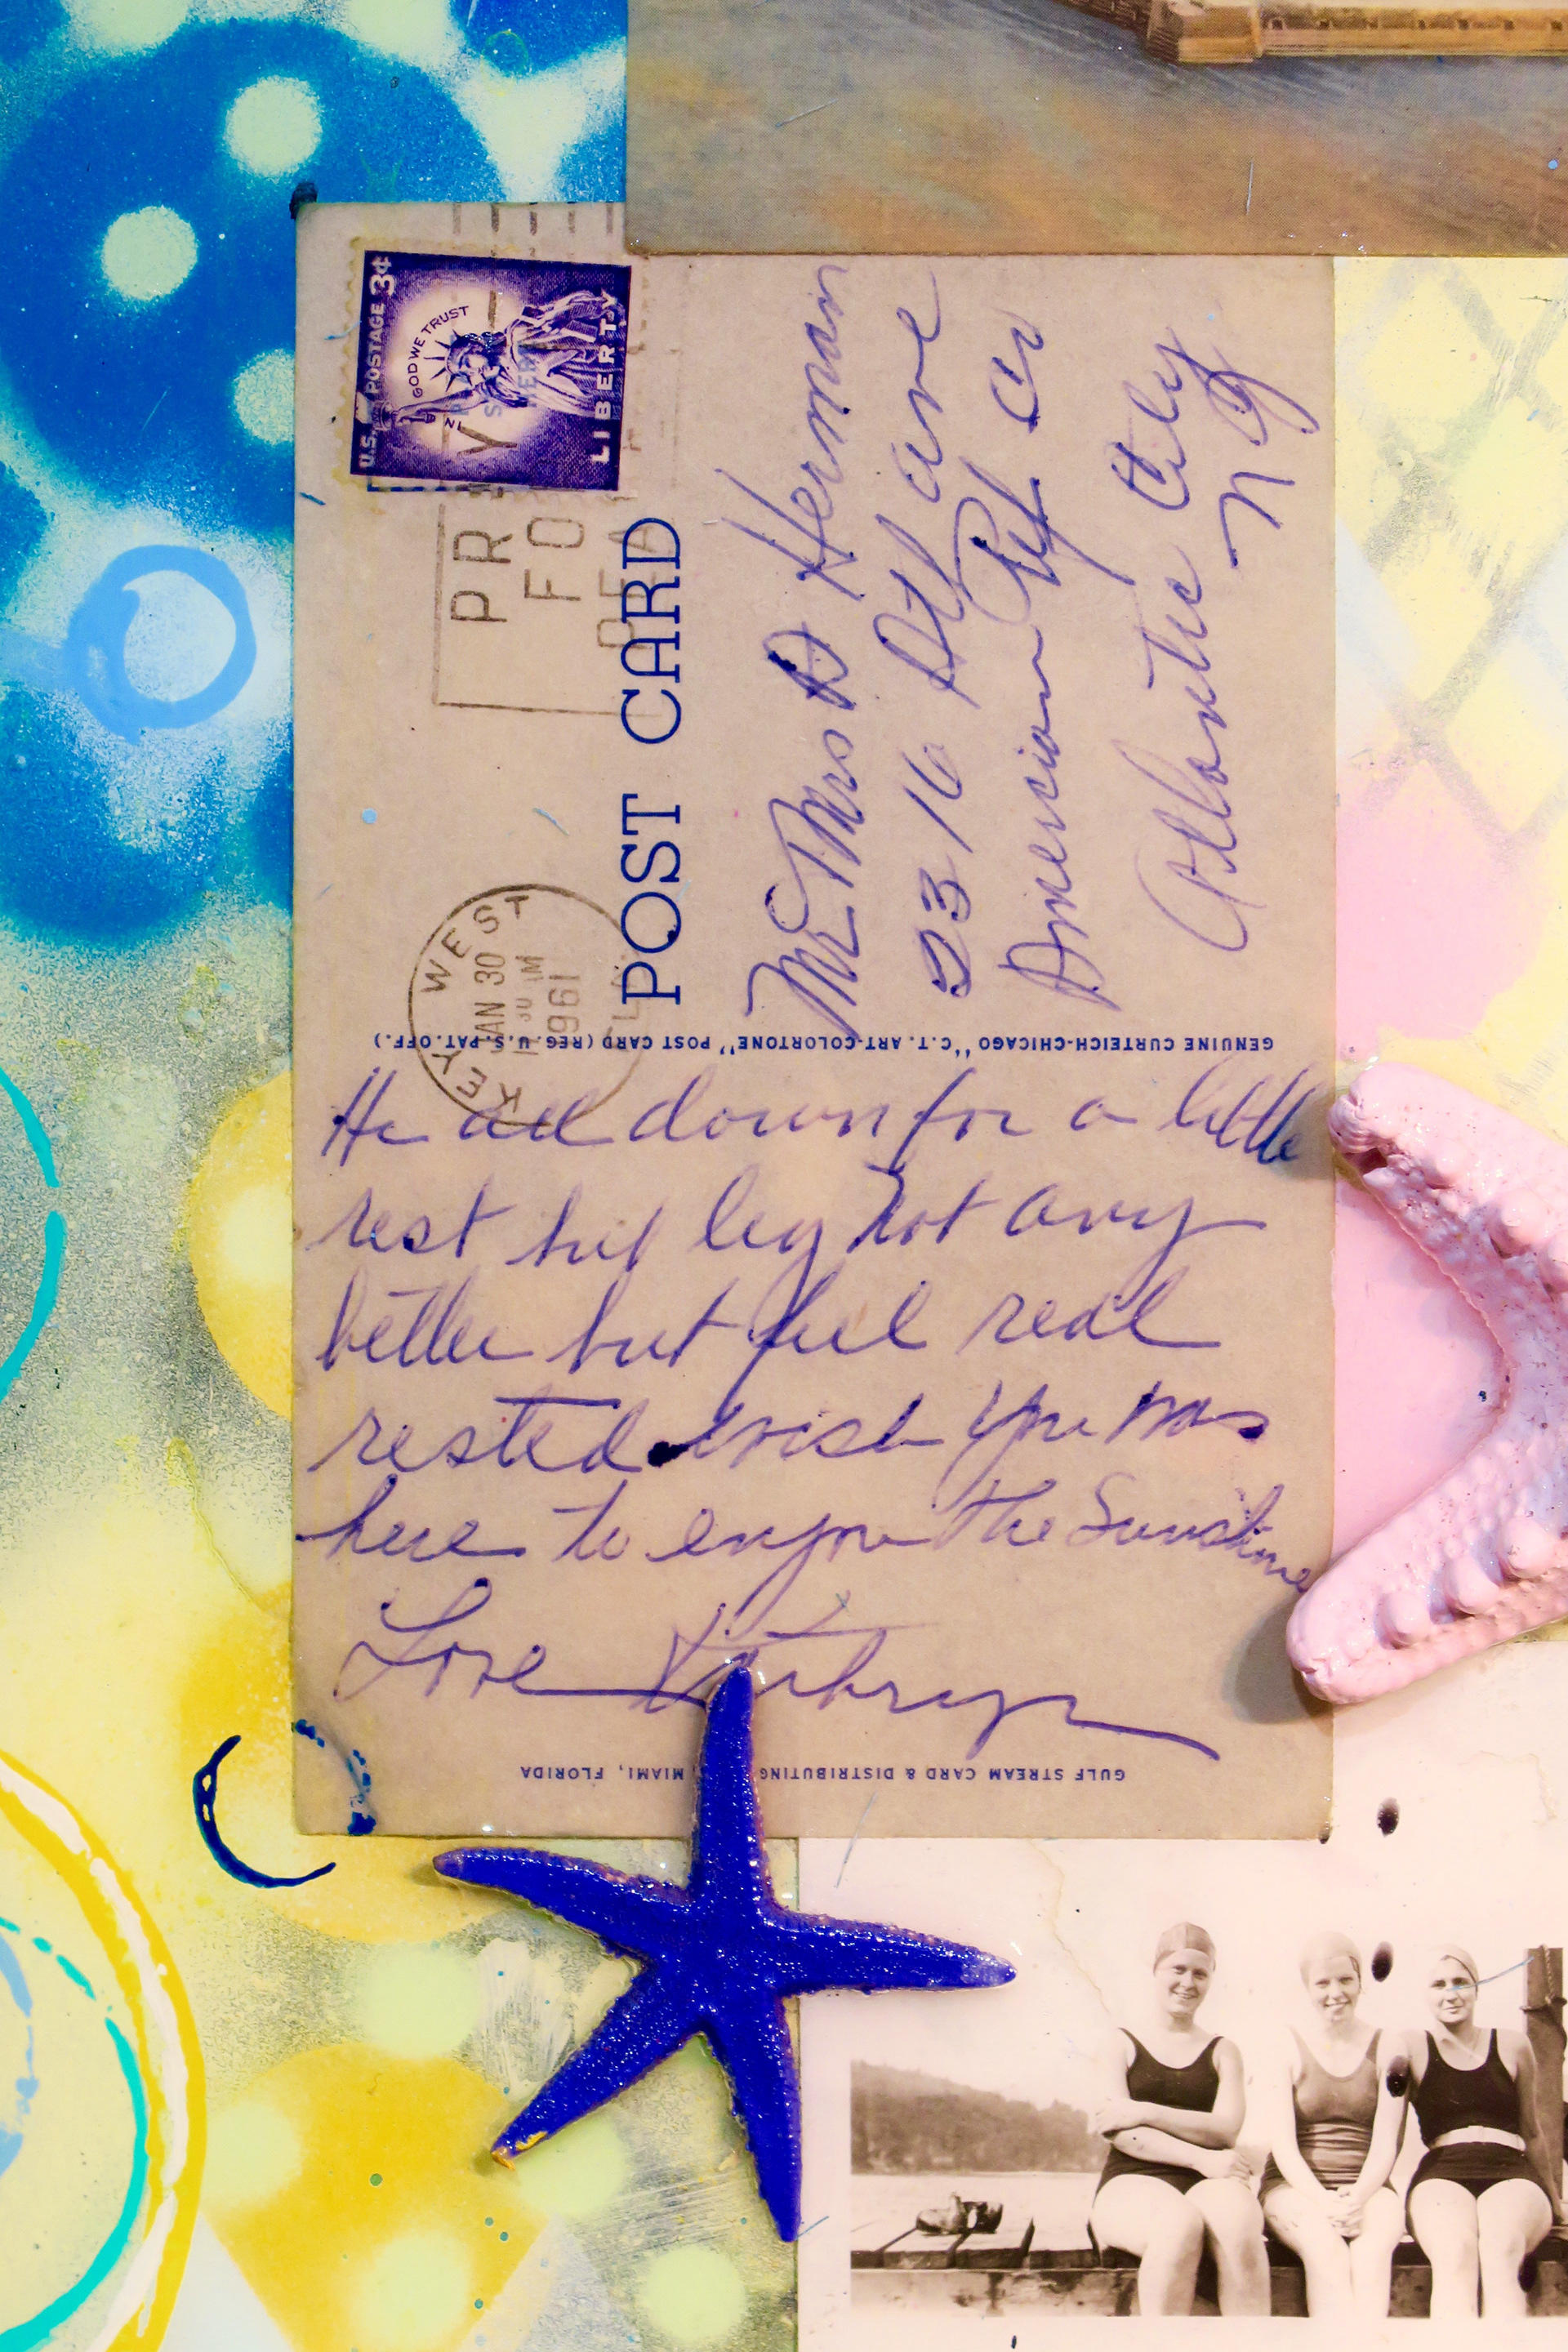 U.S. POSTAGE 3¢
IN GOD WE TRUST
LIBERTY
PR
FO
DEA
KEY WEST
JAN 30
1961
FLA
POST CARD
Mr Mrs D Herman
2316 Atl ave
American
Atlantic City
N J
GENUINE CURTEICH-CHICAGO "C.T. ART-COLORTONE" POST CARD (REG. U.S. PAT. OFF.)
Hi all down for a little
rest but leg not any
better but feel real
rested wish you was
here to enjoy the Sunshine
Love Kathryn
GULF STREAM CARD & DISTRIBUTING MIAMI, FLORIDA